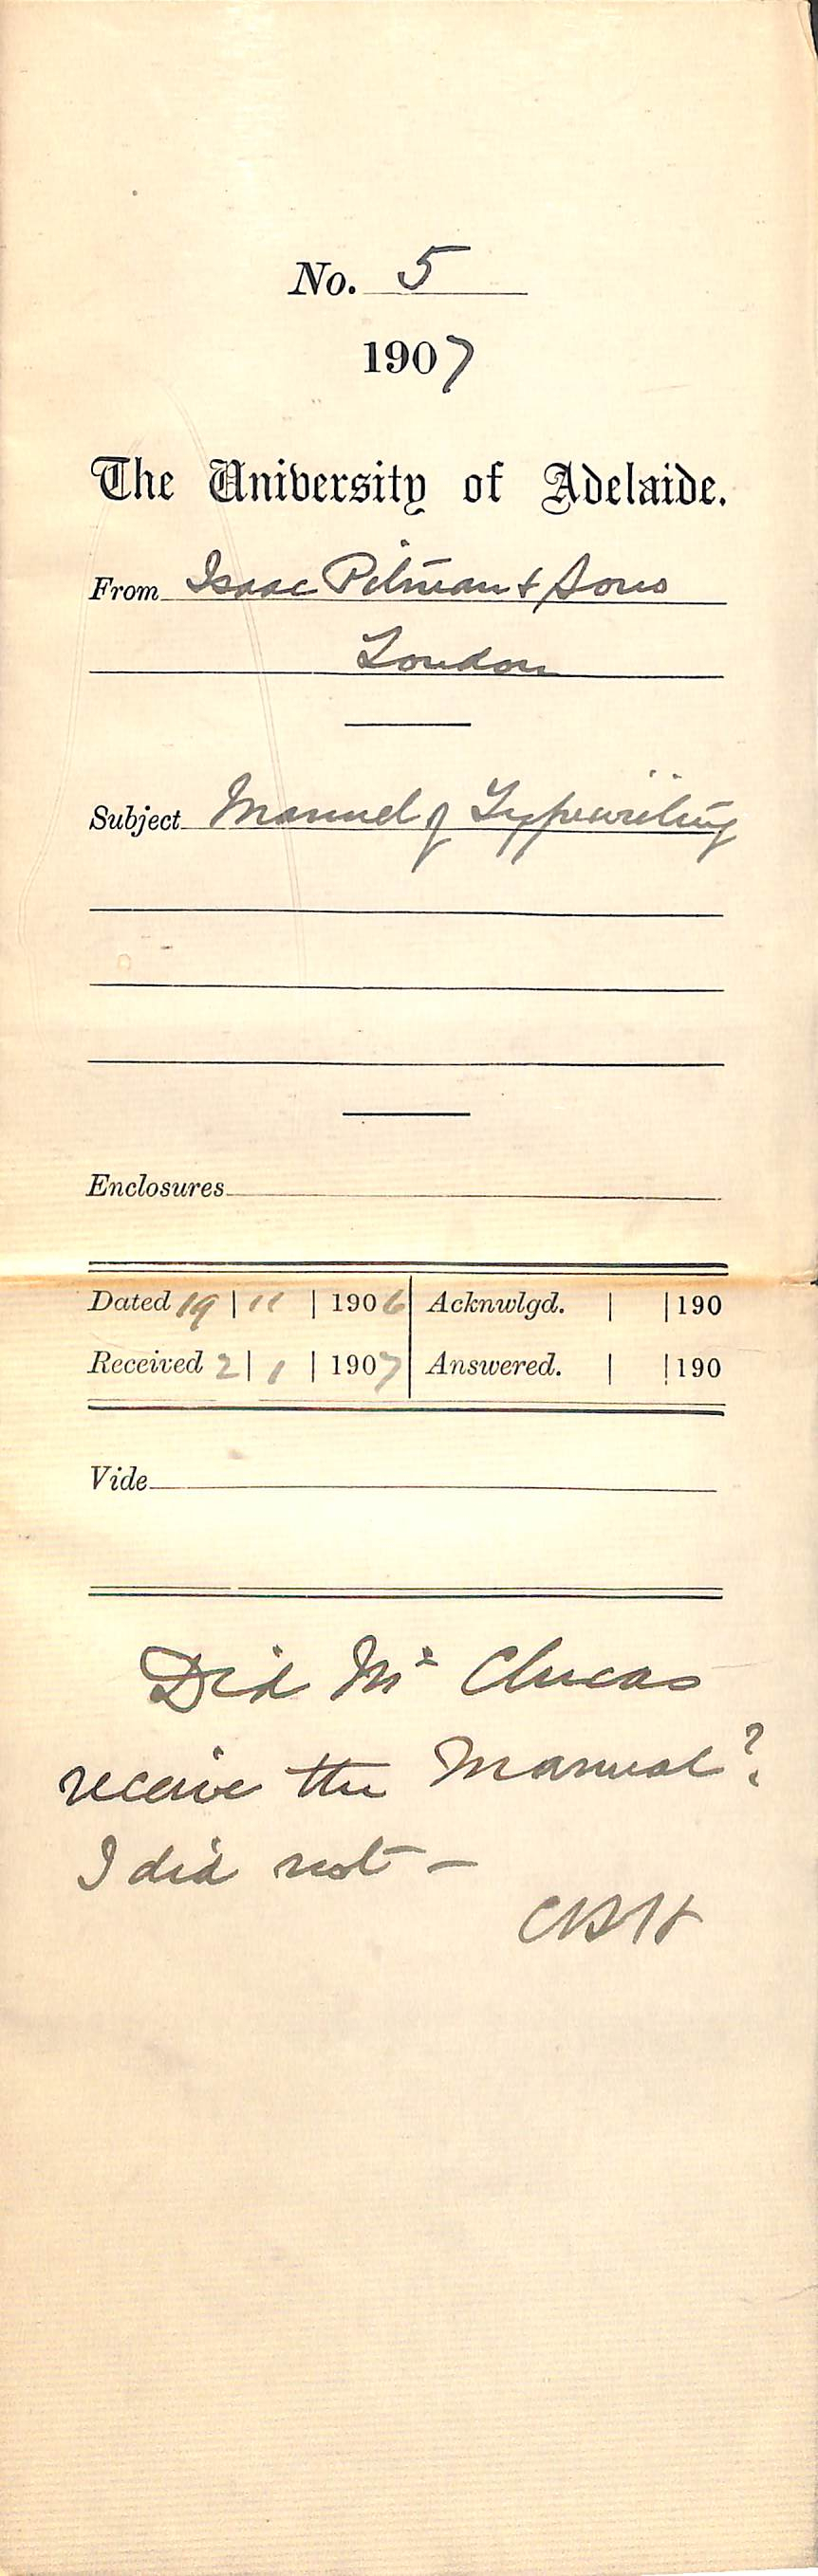 No. 5
1907
The University of Adelaide.
From Isaac Pitman & Sons
London
Subject Manual of Typewriting
Enclosures
Dated 19 | 11 | 1906 Acknwlgd. | | 190
Received 2 | 1 | 1907 Answered. | | 190
Vide
Did Mr Clucas
receive the Manual?
I did not —